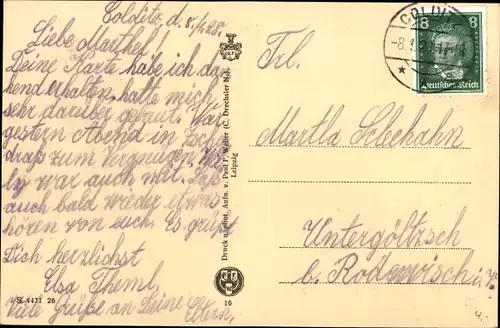 Colditz, d. 8./1.28.
Liebe Marthel!
Deine Karte habe ich dan
kend erhalten, hatte mich
sehr darüber gefreut. War
gestern Abend in
draß zum Vergnügen.
war auch mit. Laß
auch bald wieder etwas
hören von euch. Es grüßt
Dich herzlichst
Elsa Theml,
Viele Grüße an Deine Eltern,
S 4471 26
16
Druck u. photogr. Aufn. v. Paul F. Weber (C. Drechsler N.)
Leipzig
COLDITZ
-8.1.28
8 8
Deutsches Reich
Frl.
Martla
Untergöltzsch
b. Rodewisch i. V.
4.-